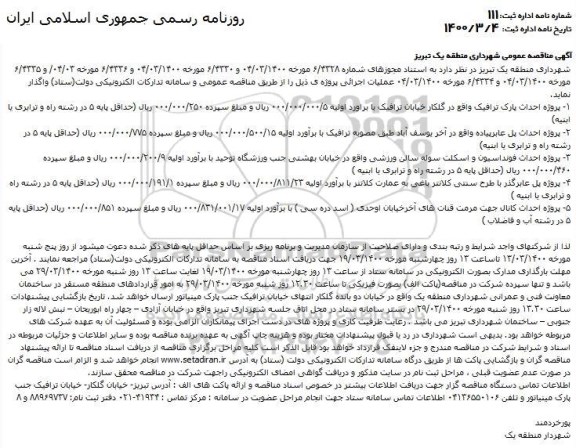 روزنامه رسمی جمهوری اسلامی ایران
شماره نامه اداره ثبت: 111
تاریخ نامه اداره ثبت: 1400/3/4
آگهی مناقصه عمومی شهرداری منطقه یک تبریز
شهرداری منطقه یک تبریز در نظر دارد به استناد مجوزهای شماره 6/4328 مورخه 04/03/1400 و 6/4330 مورخه 04/03/1400 و 6/4326 مورخه 04/03/ و 6/4335
مورخه 04/03/1400 و 6/4334 مورخه 04/03/1400 عملیات اجرائی پروژه ی ذیل را از طریق مناقصه عمومی و سامانه تدارکات الکترونیکی دولت(ستاد) واگذار
نماید.
1- پروژه احداث پارک ترافیک واقع در گلکار خیابان ترافیک با برآورد اولیه 000/000/000/5 ریال و مبلغ سپرده 000/000/250 ریال (حداقل پایه 5 در رشته راه و ترابری یا
ابنیه)
2- پروژه احداث پل عابرپیاده واقع در آخر یوسف آباد طبق مصوبه ترافیک با برآورد اولیه 000/000/500/15 ریال و مبلغ سپرده 000/000/775 ریال (حداقل پایه 5 در
رشته راه و ترابری یا ابنیه)
3- پروژه احداث فونداسیون و اسکلت سوله سالن ورزشی واقع در خیابان بهشتی جنب ورزشگاه توحید با برآورد اولیه 000/000/200/9 ریال و مبلغ سپرده
000/000/460 ریال (حداقل پایه 5 در رشته راه و ترابری یا ابنیه )
4- پروژه پل عابرگذر با طرح سنتی کلانتر باغی به عمارت کلانتر با برآورد اولیه 000/000/811/23 ریال و مبلغ سپرده 000/000/191/1 ریال (حداقل پایه 5 در رشته راه
و ترابری یا ابنیه )
5- پروژه احداث کانال جهت مرمت قنات های آخرخیابان اوحدی ( اسد دره سی ) با برآورد اولیه 000/831/001/17 ریال و مبلغ سپرده 000/000/851 ریال (حداقل پایه
5 در رشته آب و فاضلاب )
لذا از شرکتهای واجد شرایط و رتبه بندی و دارای صلاحیت از سازمان مدیریت و برنامه ریزی بر اساس حداقل پایه های ذکر شده دعوت میشود از روز پنج شنبه
مورخه 13/03/1400 تاساعت 13 روز چهارشنبه مورخه 19/03/1400 جهت دریافت اسناد مناقصه به سامانه تدارکات الکترونیکی دولت(ستاد) مراجعه نمایند . آخرین
مهلت بارگذاری مدارک بصورت الکترونیکی در سامانه ستاد از ساعت 13 روز چهارشنبه مورخه 19/03/1400 لغایت ساعت 13 روز شنبه مورخه 29/03/1400 می
باشد و تنها سپرده شرکت در مناقصه(پاکت الف) بصورت فیزیکی تا ساعت 13.30 روز شنبه مورخه 29/03/1400 به امور قراردادهای منطقه مستقر در ساختمان
معاونت فنی و عمرانی شهرداری منطقه یک واقع در خیابان دو باندی گلکار انتهای خیابان ترافیک جنب پارک مینیاتور ارسال خواهد شد. تاریخ بازگشایی پیشنهادات
ساعت 13.30 روز شنبه مورخه 29/03/1400 در بستر سامانه ستاد در محل اتاق جلسه شهرداری تبریز واقع در خیابان آزادی – چهار راه ابوریحان – نبش لاله زار
جنوبی – ساختمان شهرداری تبریز می باشد . رعایت ظرفیت کاری و پروژه های در دست اجرای پیمانکاران الزامی بوده و مسئولیت آن به عهده شرکت های
مربوطه خواهد بود. بدیهی است شهرداری در رد یا قبول پیشنهادات مختار بوده و هزینه چاپ آگهی به عهده برنده مناقصه بوده و سایر اطلاعات و جزئیات مربوطه در
اسناد و شرایط شرکت در مناقصه مندرج و جزء لاینفک قرارداد خواهد بود.قابل الذکر است کلیه مراحل برگزاری مناقصه از دریافت اسناد مناقصه تا ارائه پیشنهاد
مناقصه گران و بازگشایی پاکت ها از طریق درگاه سامانه تدارکات الکترونیکی دولت (ستاد) به آدرس www.setadiran.ir انجام خواهد شد و الزام است مناقصه گران
در صورت عدم عضویت قبلی ، مراحل ثبت نام در سایت مذکور و دریافت گواهی امضای الکترونیکی راجهت شرکت در مناقصه محقق سازند.
اطلاعات تماس دستگاه مناقصه گزار جهت دریافت اطلاعات بیشتر در خصوص اسناد مناقصه و ارائه پاکت های الف : آدرس تبریز- خیابان گلکار- خیابان ترافیک جنب
پارک مینیاتور و تلفن 04136550106 اطلاعات تماس سامانه ستاد جهت انجام مراحل عضویت در سامانه : مرکز تماس : 41934-021 دفتر ثبت نام: 88969737 و 8
پورخردمند
شهردار منطقه یک